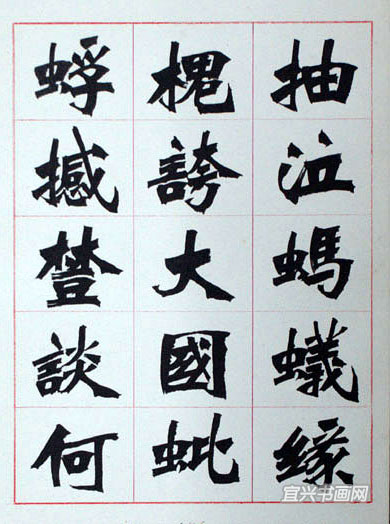 抽泣螞蟻緣
槐誇大國蚍
蜉撼樹談何
宜兴书画网